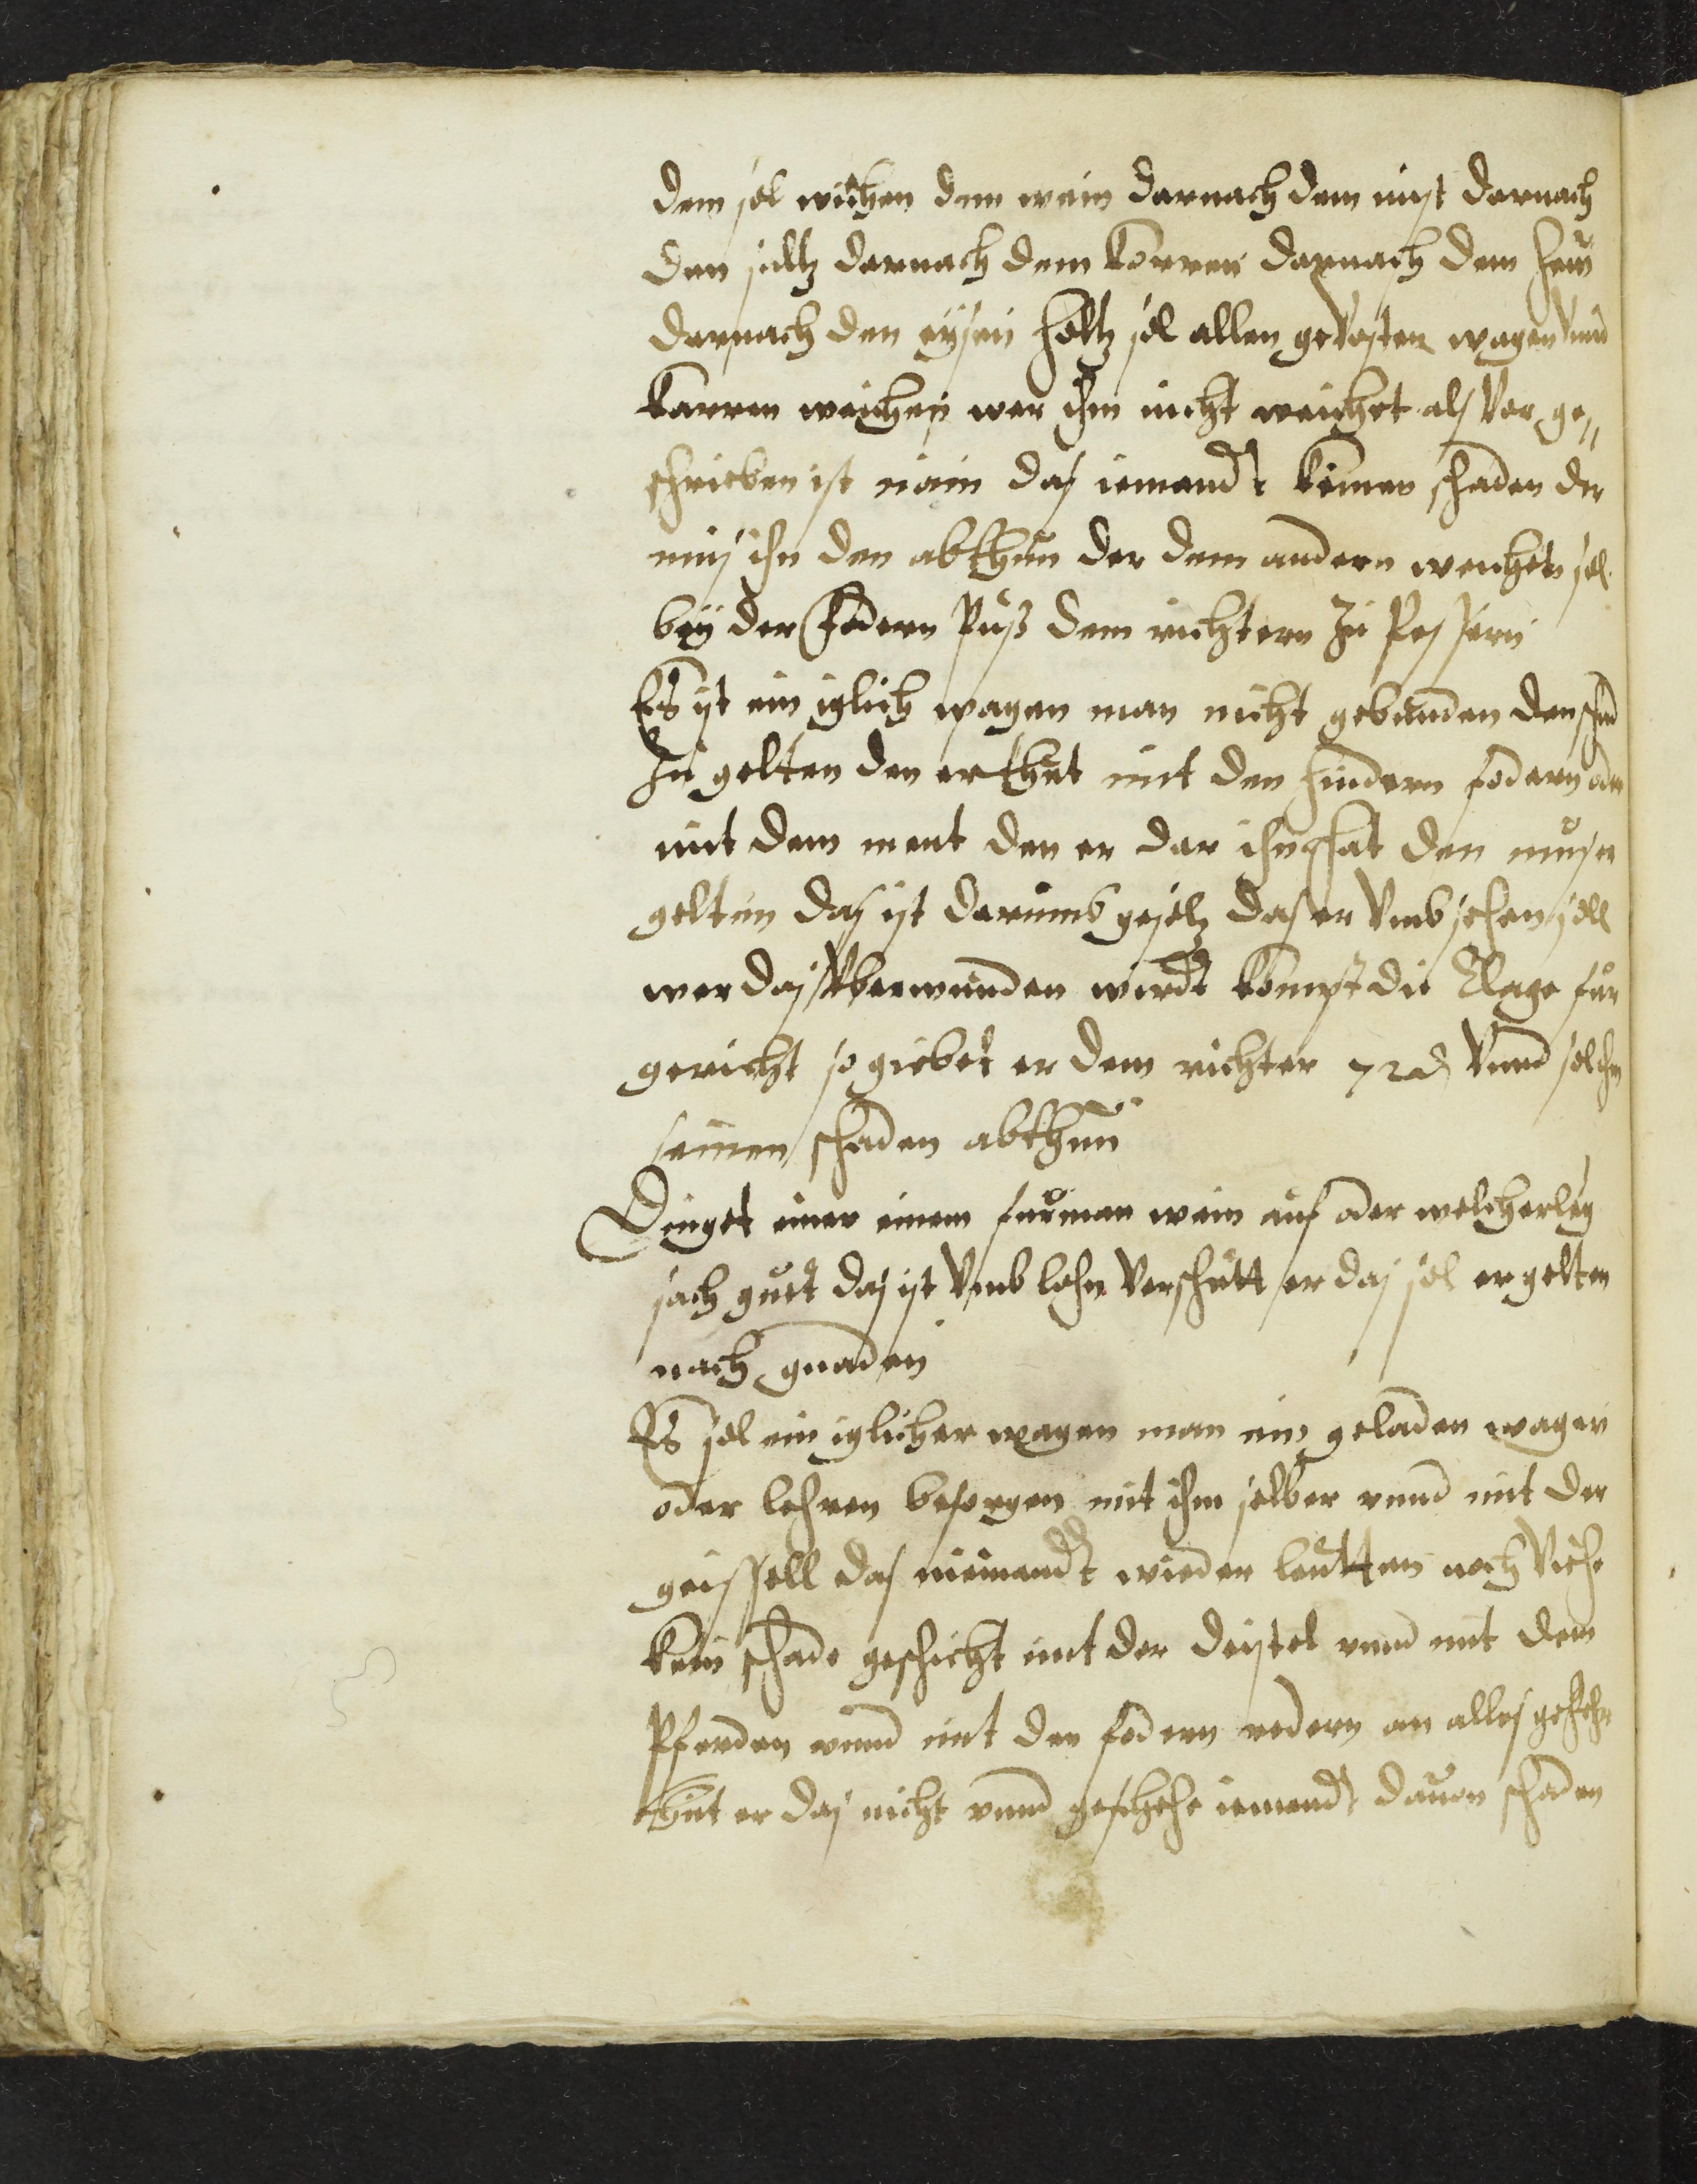 dem sol wichen dem wein darnach dem mist darnach
den saltz darnach dem korren darnach dem hew
darnach den eysen holtz sol allen gekosten wagen vnnd
karren weichen wer ihm nicht weichet als vor ge„
schrieben ist nam das iemandt keiner schaden der
mus ihn den abthun der dem andern weichen sol
bey der fodern Puß dem richtern zu Pessern
Es ist ein iglich wagen man nicht gebunden den schad
zu gelten den er thut mit den hindern fodern oder
mit dem ment den er dar hat den mus er
gelten das ist darumb gesetz das er vmb sehen soll
wer das vberwunden wirdt kompt die klage fur
gericht so giebet er dem richter 72 d vnnd solchen
seinen schaden abthun
Dinget einer einem furman wein auf oder welcherley
sach guet das ist vmb lohn verschutt er das sol er gelten
nach gnaden
Es sol ein iglicher wagen man ein geladen wagen
oder lehren besorgen mit ihm selber vnnd mit der
geissell das niemandt wieder leutten noch viehe
kein schade geschicht mit der deistel vnnd mit den
Pferden vnnd mit den fodern redern an alles gefehr
thut er das nicht vnnd geschehe iemandt dauon schaden